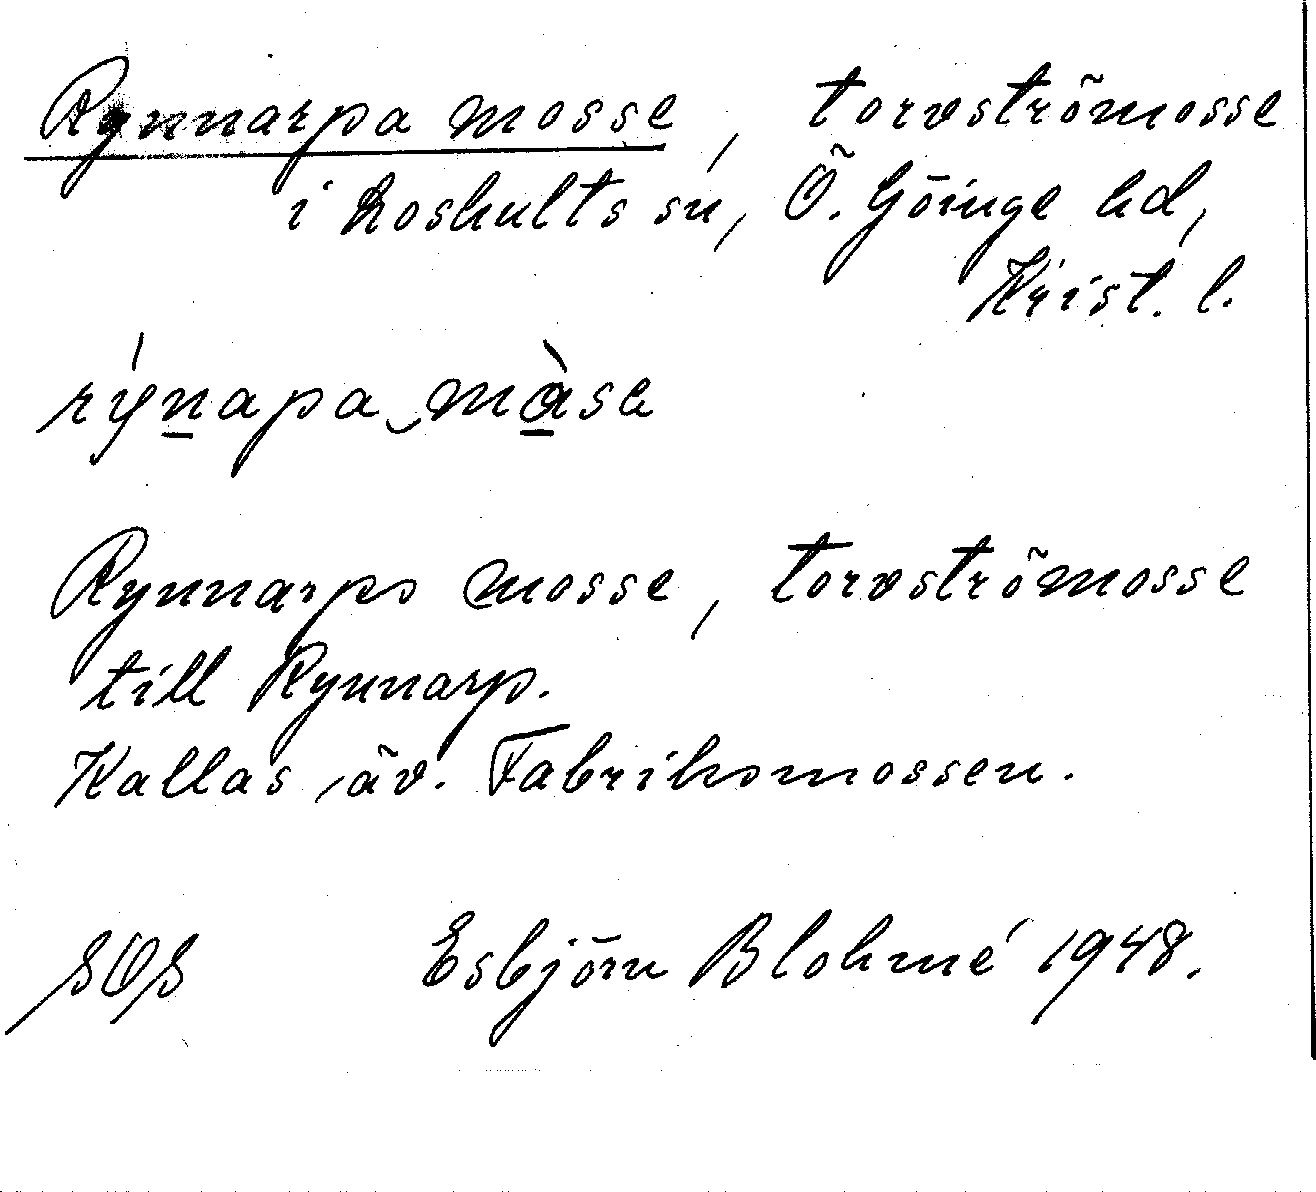 Rynnarpa mosse, torvströmosse
i Loshults sn, Ö. Göinge hd,
Krist. l.
rýn̲apa‿mὰ̲sa
Rynnarps mosse, torvströmosse
till Rynnarp.
Kallas äv. Fabriksmossen.
SOS Esbjörn Blohmé 1948.